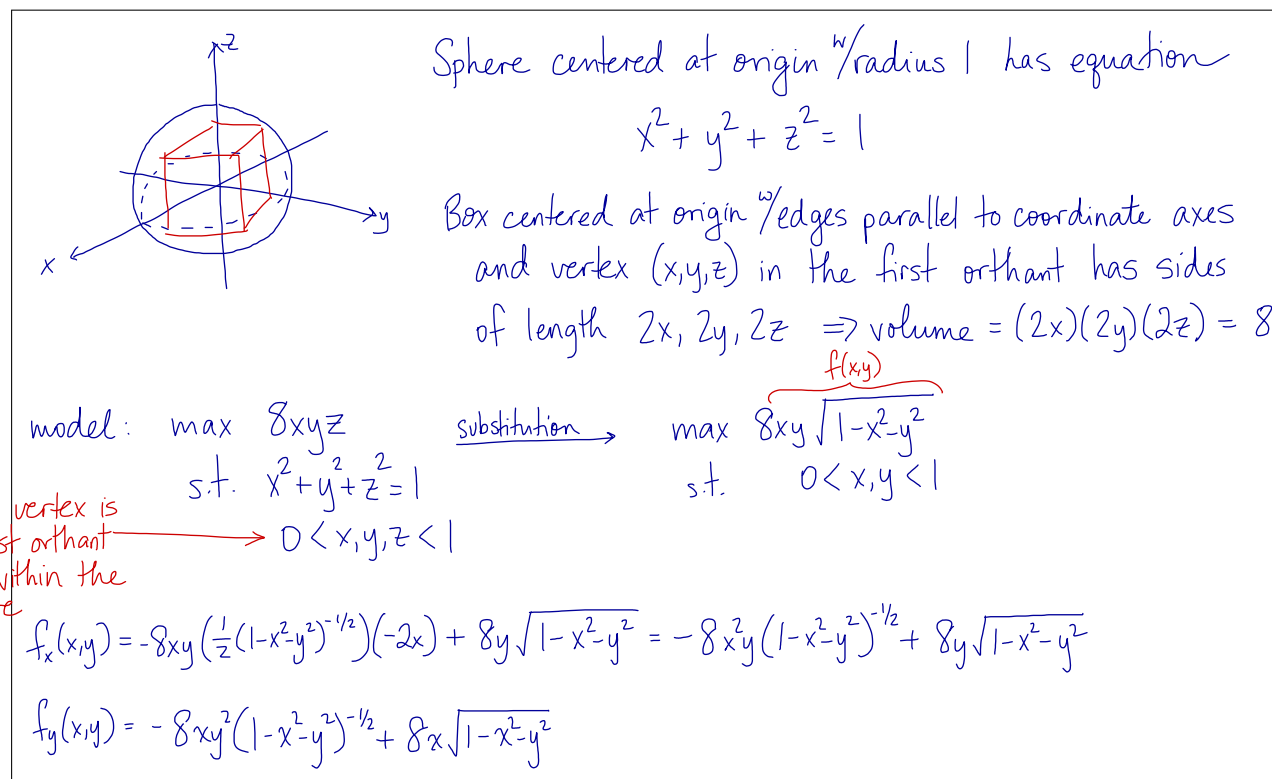 z
y
x
Sphere centered at origin w/radius 1 has equation
x² + y² + z² = 1
Box centered at origin w/edges parallel to coordinate axes
and vertex (x,y,z) in the first orthant has sides
of length 2x, 2y, 2z ⇒ volume = (2x)(2y)(2z) = 8
f(x,y)
model: max 8xyz substitution → max 8xy√(1-x²-y²)
s.t. x²+y²+z²=1 s.t. 0<x,y<1
vertex is
st orthant → 0<x,y,z<1
within the
e
fₓ(x,y) = -8xy(½(1-x²-y²)^(-1/2))(-2x) + 8y√(1-x²-y²) = -8x²y(1-x²-y²)^(-1/2) + 8y√(1-x²-y²)
f_y(x,y) = -8xy²(1-x²-y²)^(-1/2) + 8x√(1-x²-y²)